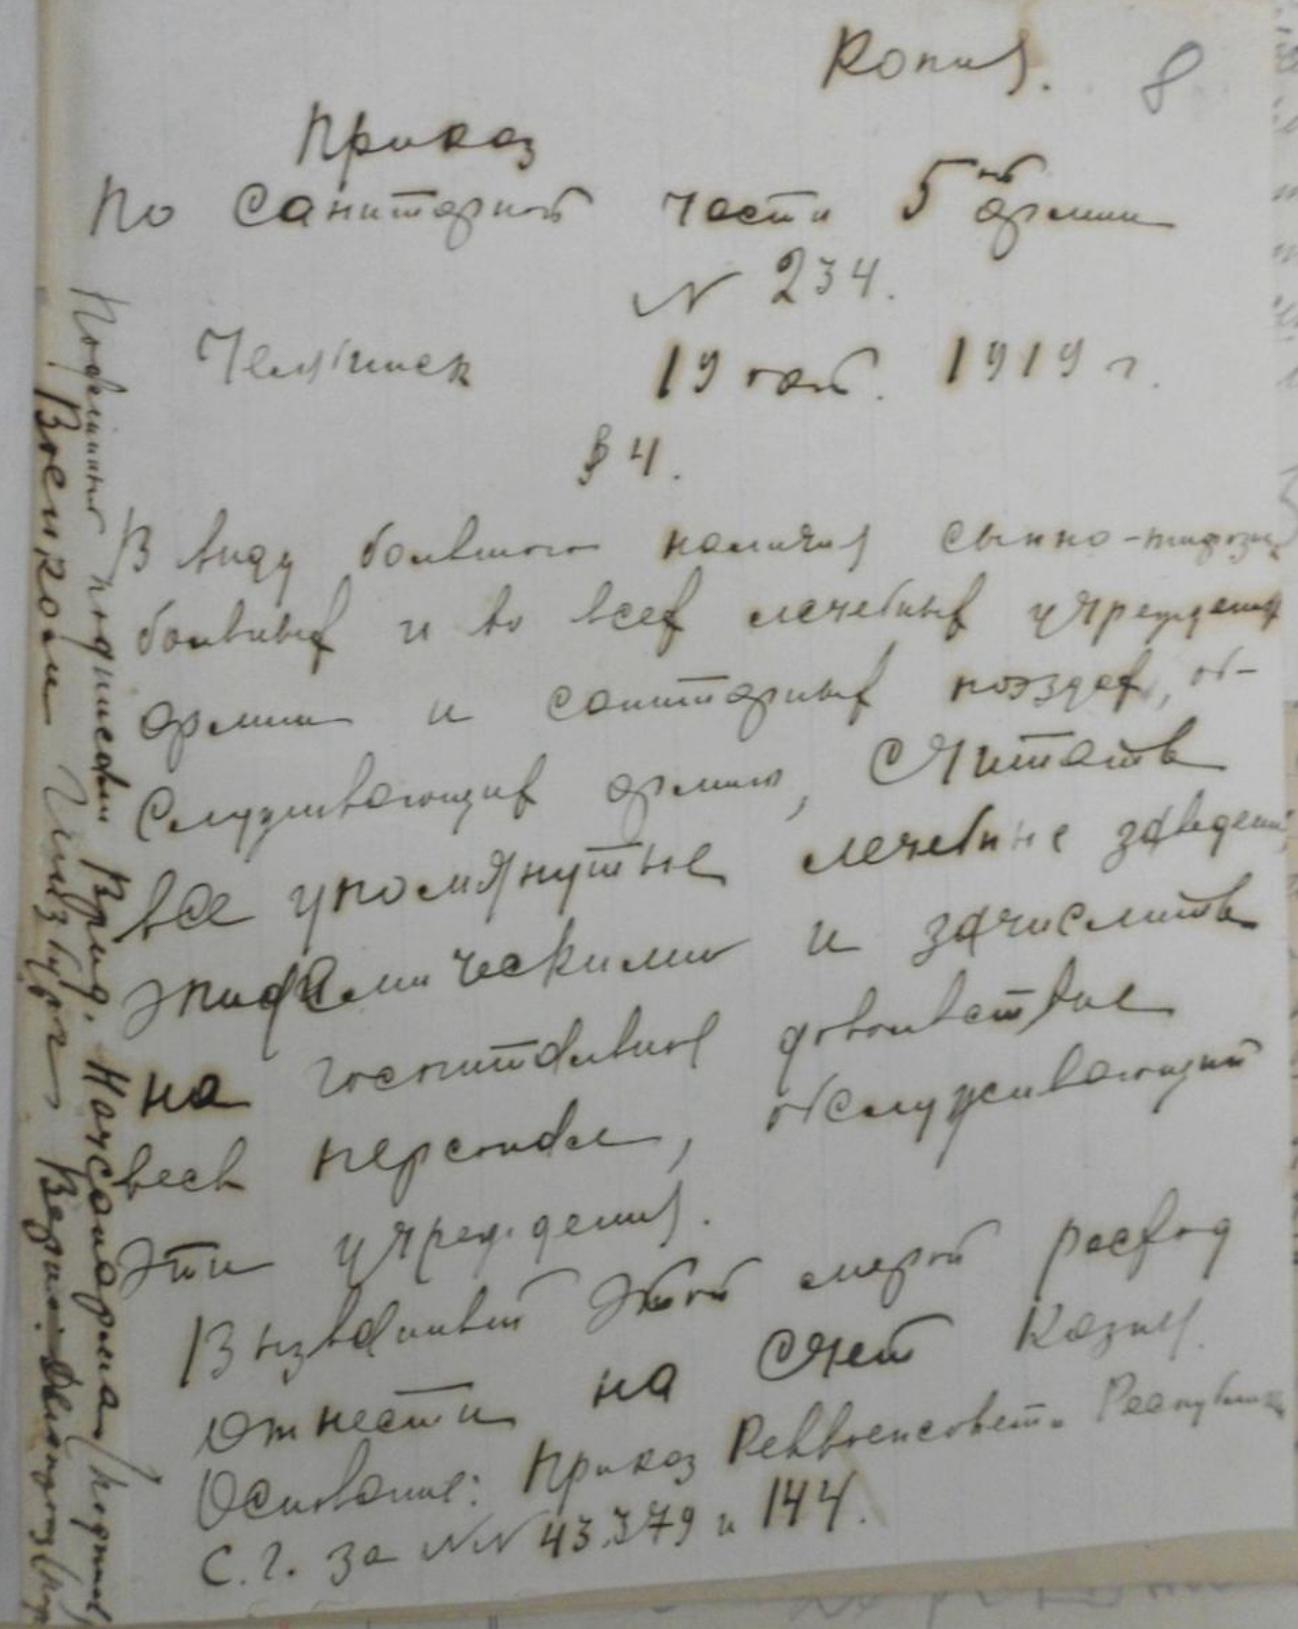 Копия. 8
Приказ
По санитарной части 5ой армии
№ 234.
Челябинск 19 окт. 1919 г.
§ 4.
В виду большого наличия сыпно-тифозн
больных и во всех лечебных учреждениях
армии и санитарных поэздах, об-
служивающих армию, считать
все упомянутые лечебные заведения
эпидемическими и зачислить
на госпитальное довольствие
весь персонал, обслуживающий
эти учреждения.
Вызванный этой мерой расход
отнести на счет казны.
Основание: Приказ Реввоенсовета Республики
С.Г. за №№ 43.379 и 144.
Подлинный подписали Врид. Начсанарма / подпись /
Военком Гинзбург Верно: Делопроиз (под